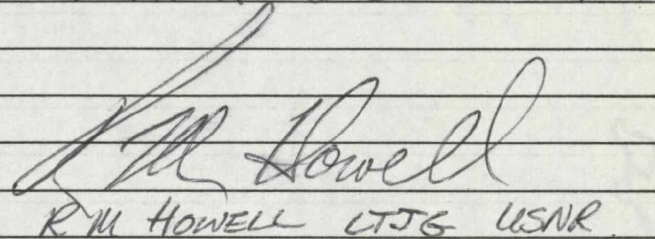 R M Howell
R M HOWELL LTJG USNR